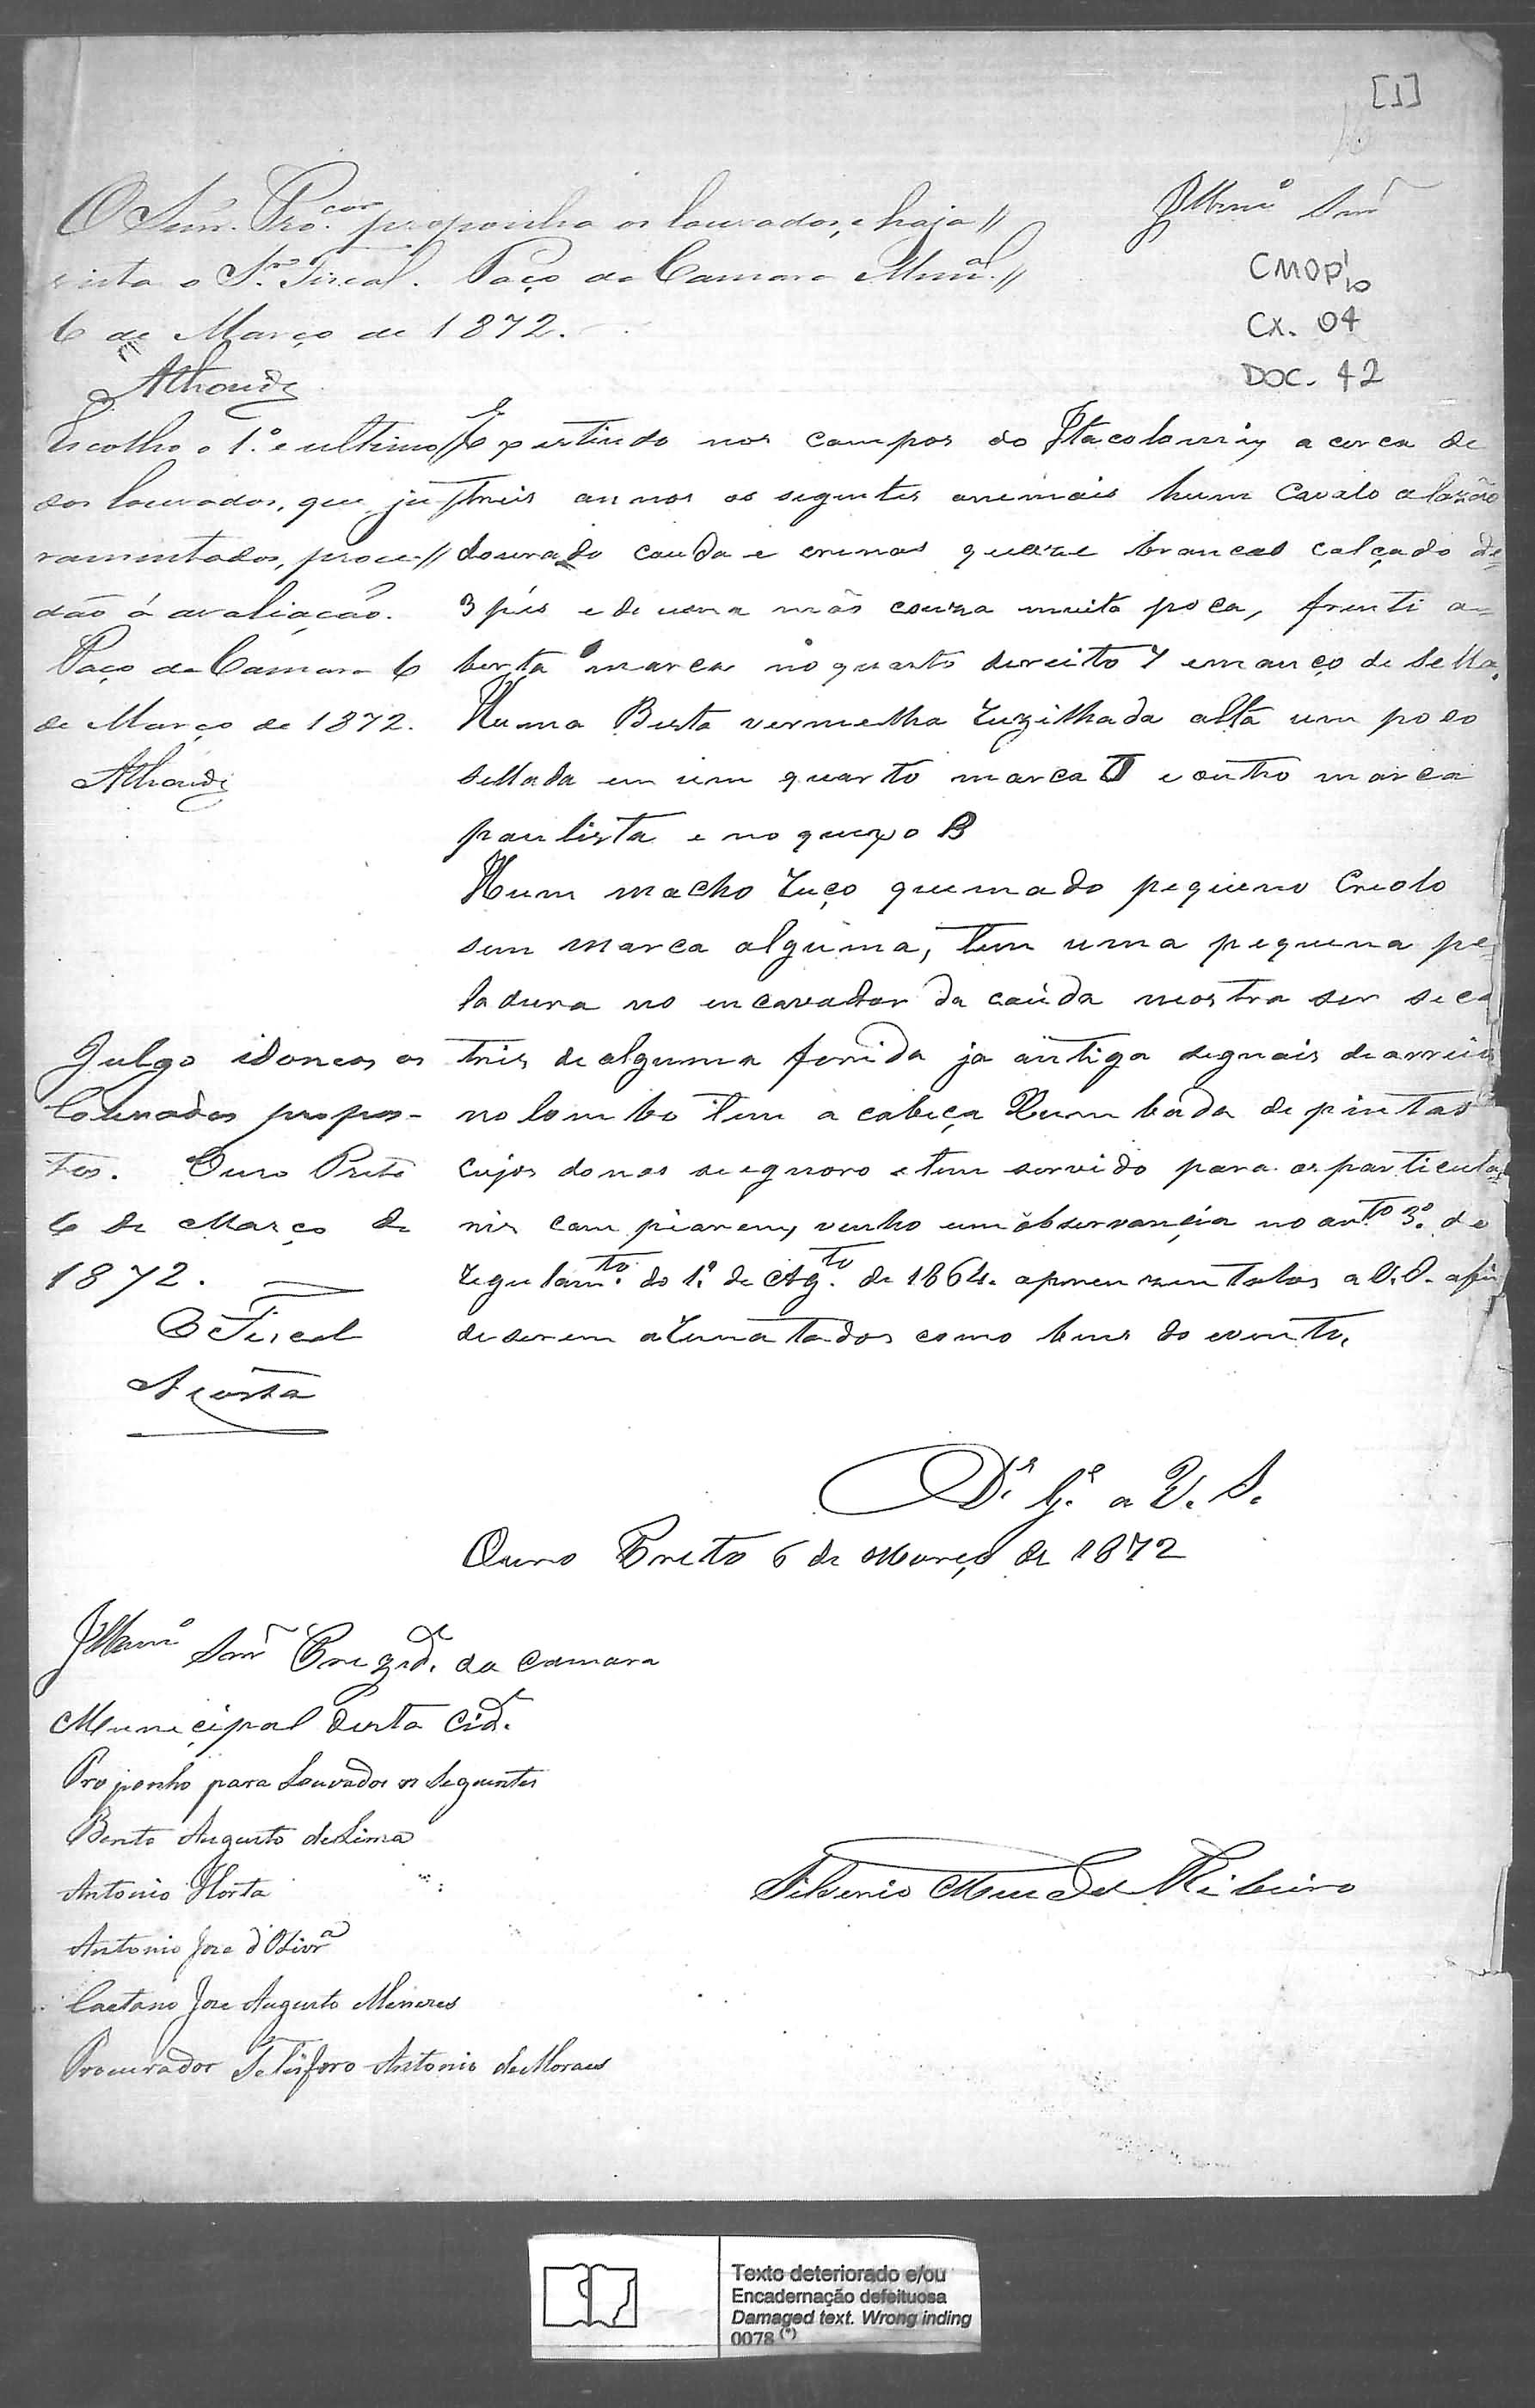 [1]
O Senr. Pro.cor proponha os louvados, e haja //
vista o Sr. Fiscal. Paço da Camara Mun.al //
6 de Março de 1872.
Illmo Snr
CMOP
CX. 04
DOC. 42
Escolho o 1.º e ultimo //
dos louvados, que, ju //
ramentados, proce- //
dão á avaliação.
Paço da Camara 6
de Março de 1872.
Julgo idoneos os
louvados propos-
tos. Ouro Preto
6 de Março de
1872.
O Fiscal
A Costa
Expistindo nos campos do Itacolomiy a cerca de
treis annos os seguntes animais hum Cavalo alazão
dourado cauda e crinas quaze brancas calçado de
3 pés e de uma mão couza muito poca, frenti a-
berta marca no quarto direito 7 e manço de Sella.
Huma Besta vermelha Ruzilhada alta um poco
sellada em um quarto marca e outro marca
paulista e no queixo B
Hum macho Ruço queimado pequeno Creolo
sem marca alguma, tem uma pequena pe-
ladura no encavador da cauda mostra ser seca
tris de alguma ferida ja antiga segnais de arreio
no lombo tem a cabeça Rumbada de pintas
Cujos donos se egnoro e tem servido para os particula-
ris campiarem, venho em observançia no art.to 3.º do
Regulam.to do 1.º de Ag.to de 1864. aprezentalos a V.S. afim
de serem aRematados como bens do evento.
D.s G.e a V. S.
Ouro Preto 6 de Março de 1872
Illmo Snr Prezid.e da Camara
Muneçipal desta Cid.e
Proponho para Louvados os Seguintes
Bento Augusto de Lima
Antonio Horta
Antonio Joze d'Olivra
Caetano Joze Augusto Menezes
Procurador Telesforo Antonio de Moraes
Silverio Mendes Ribeiro
Texto deteriorado e/ou
Encadernação defeituosa
Damaged text. Wrong inding
0078 (*)